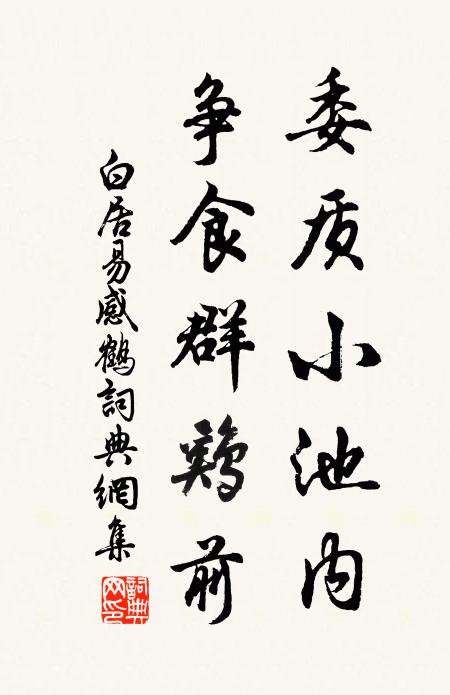 委质小池内
争食群鷄前
白居易感鶴詞典網集
詞典网印